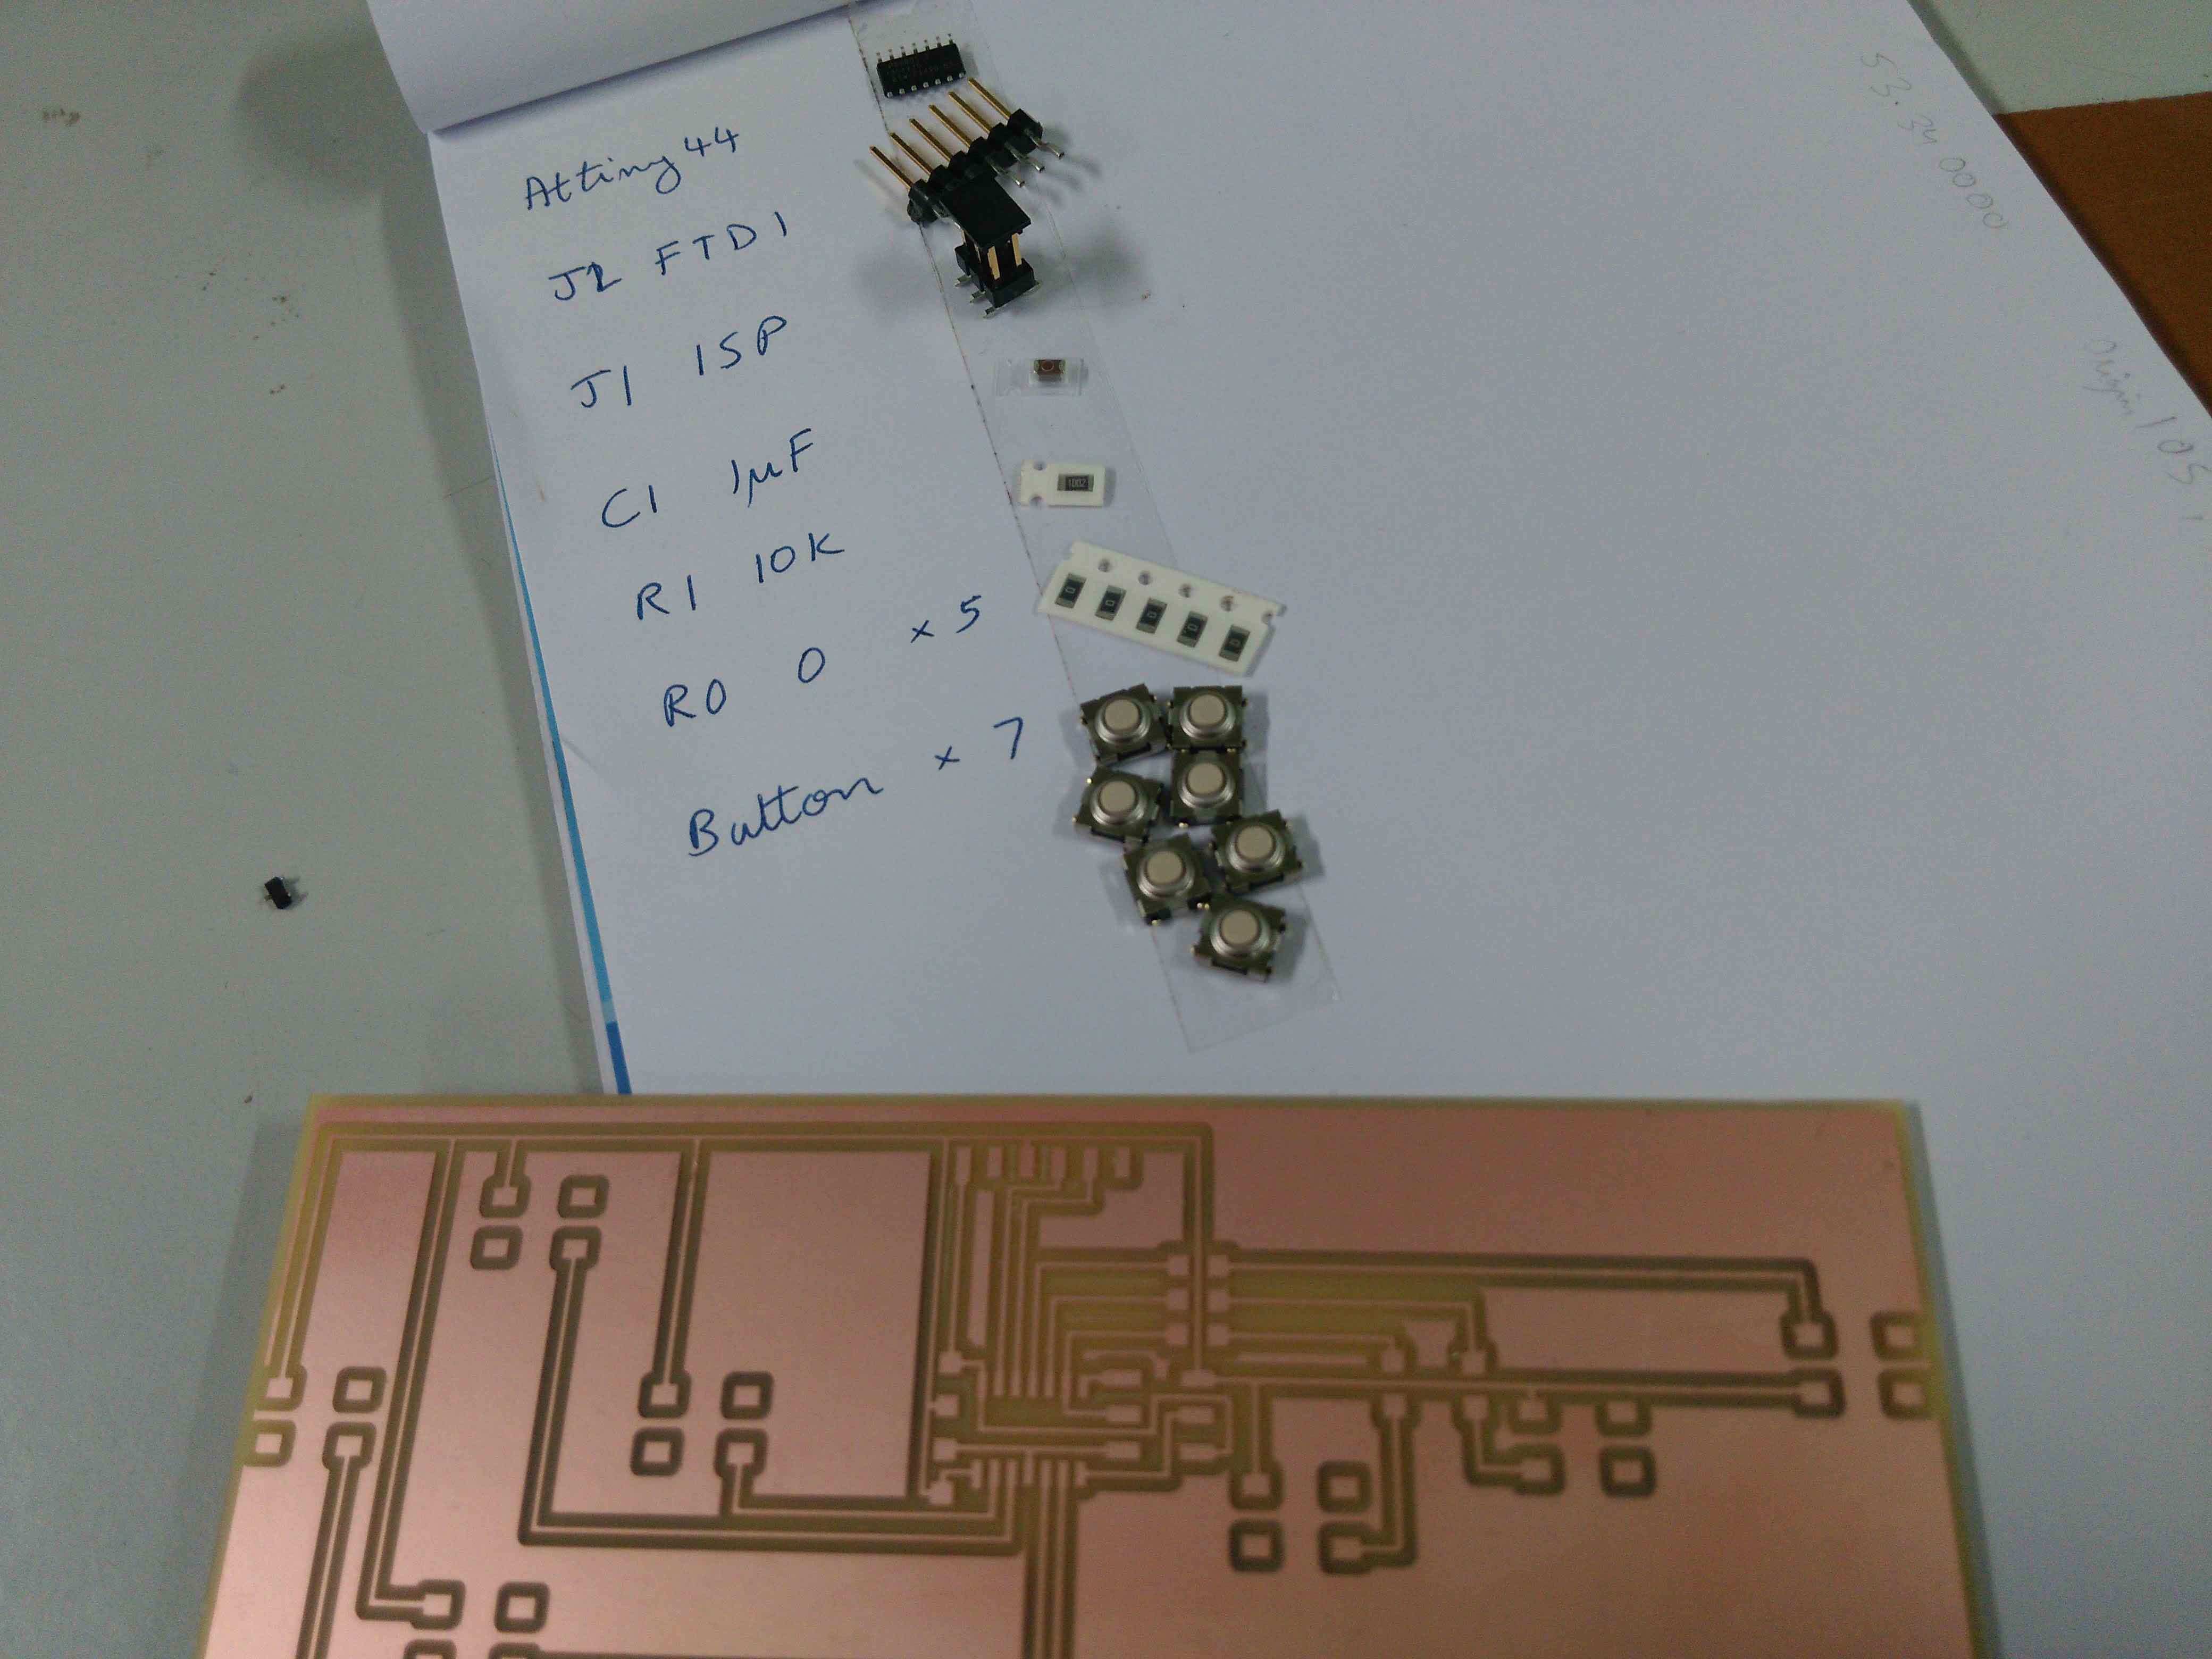 Attiny 44
J2 FTDI
J1 ISP
C1 1µF
R1 10K
R0 0 x 5
Button x 7
1002
0
0
0
0
0
53.34 0000
Origin 105